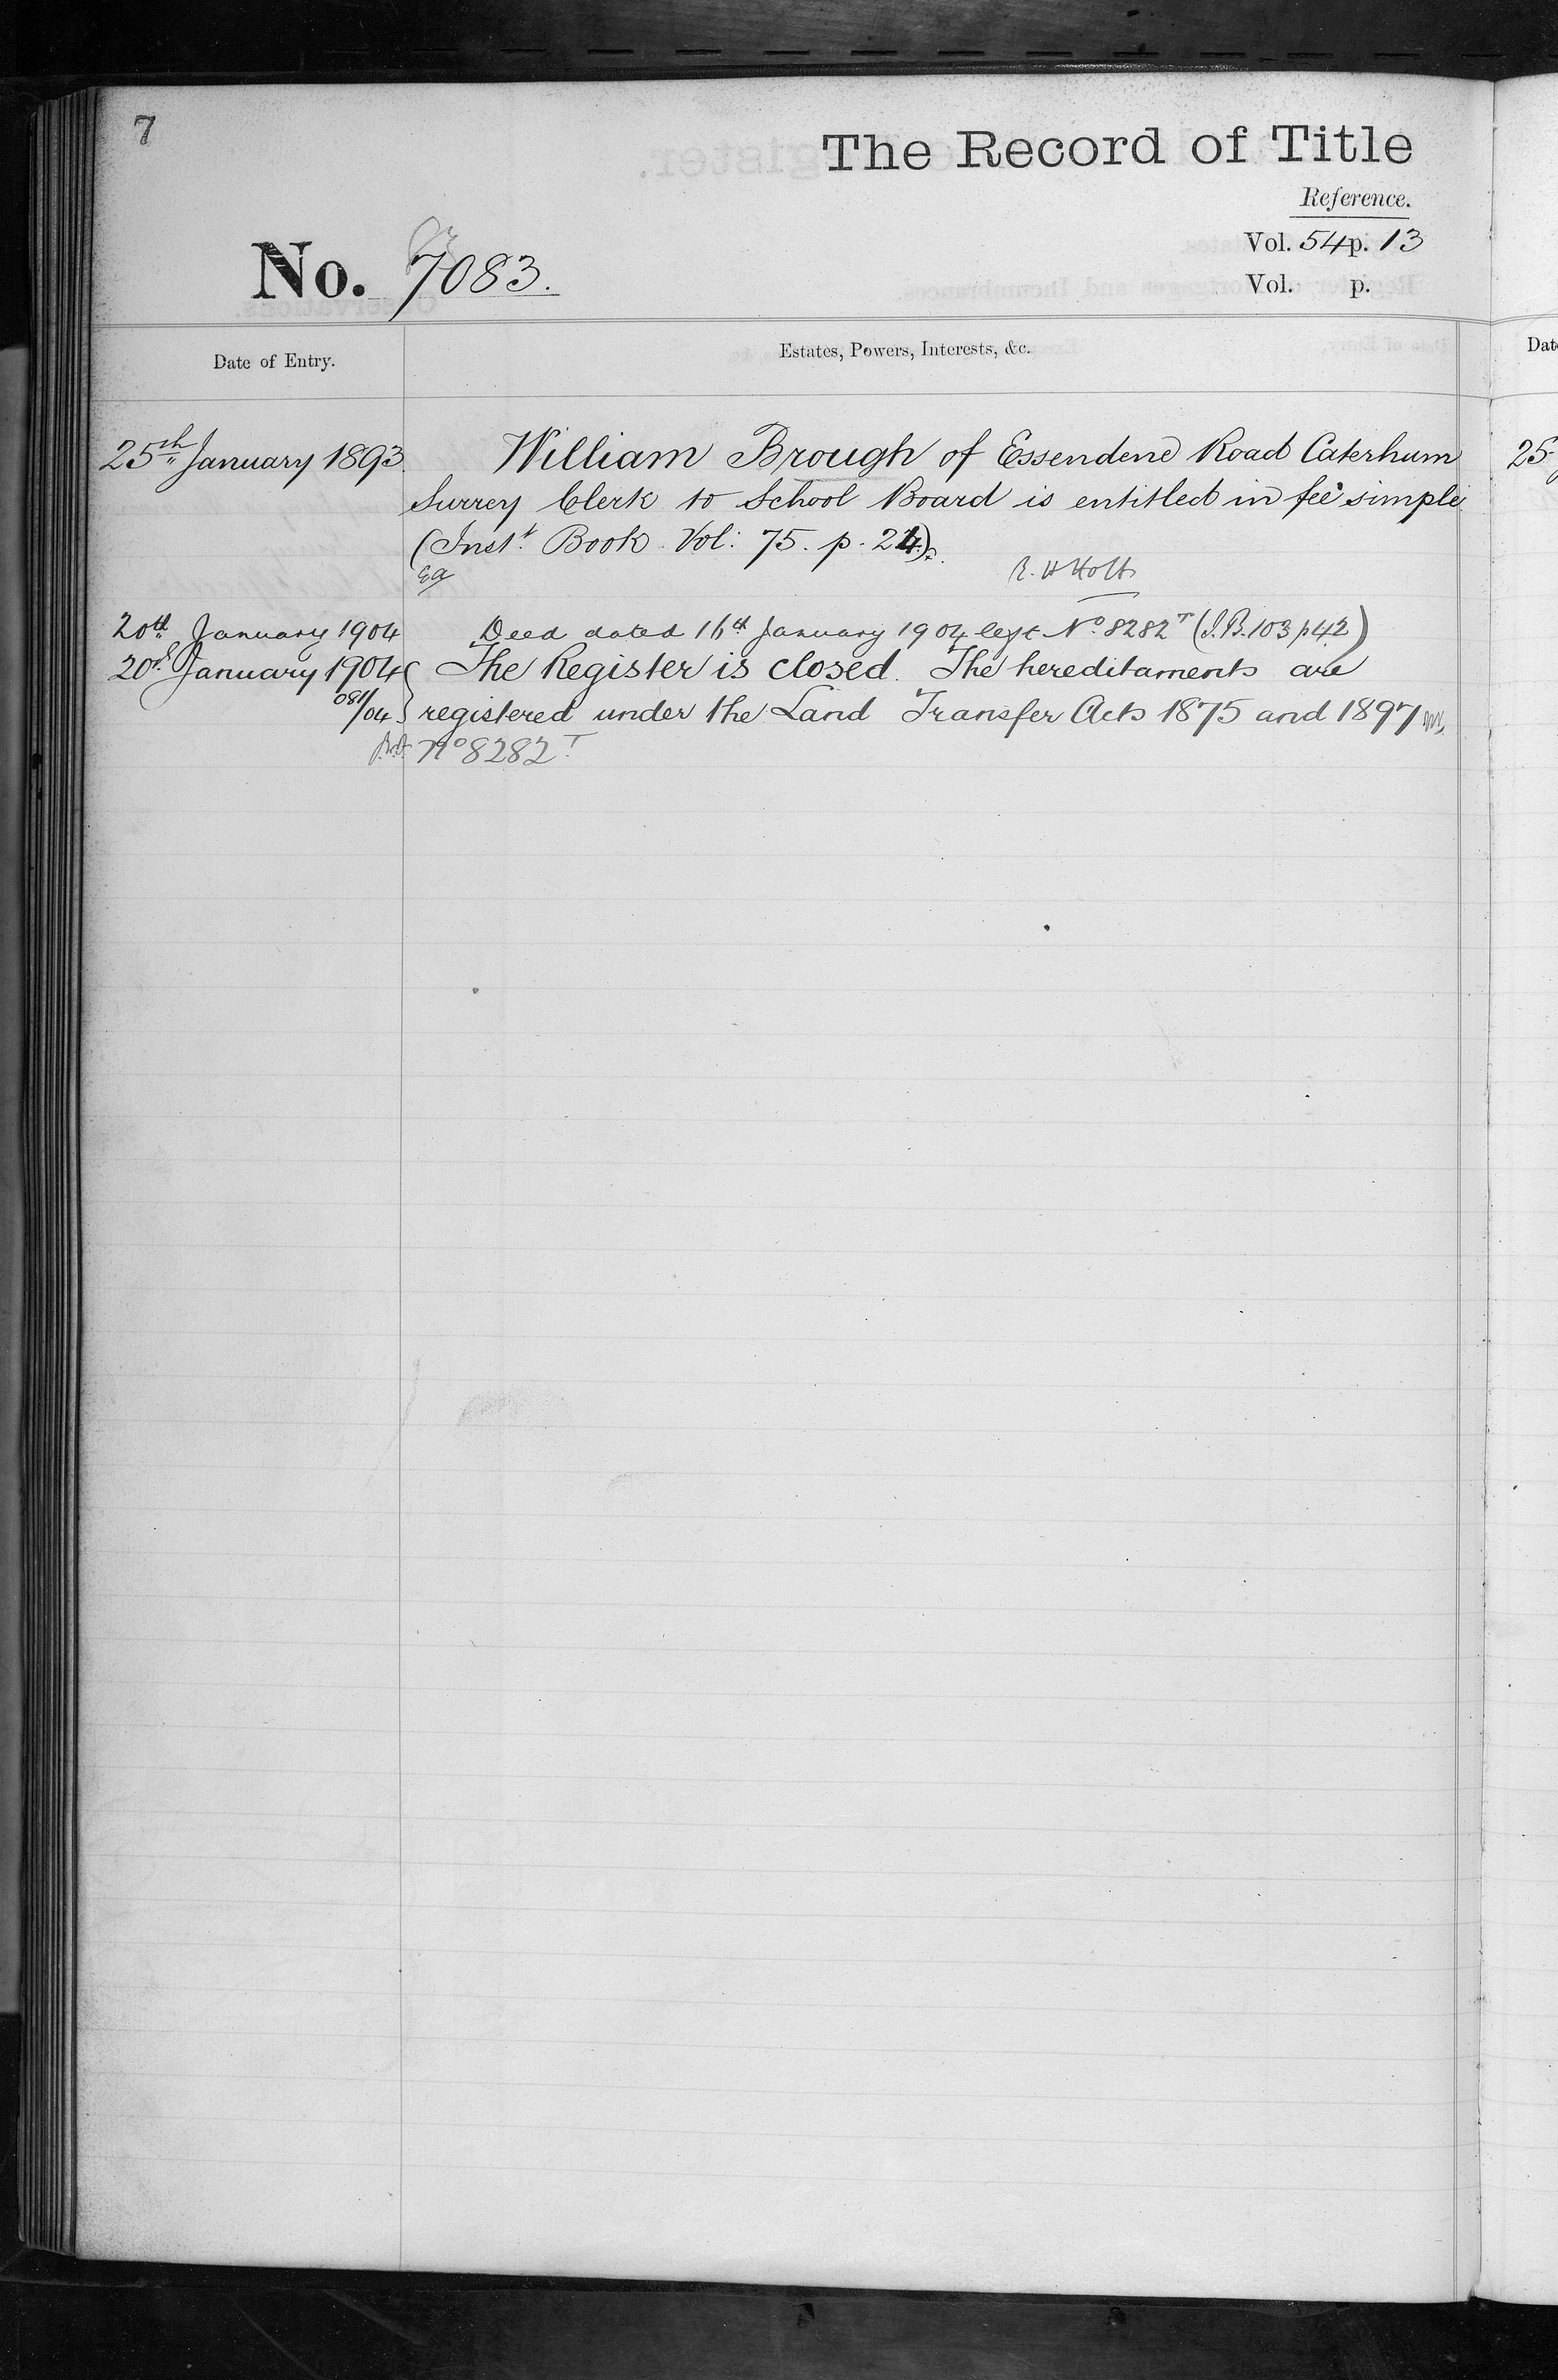 7
The Record of Title
Reference.
Vol. 54 p. 13
No. 7083.
Vol. p.
Date of Entry.
Estates, Powers, Interests, &c.
Dat
25th January 1893
William Brough of Essendene Road Caterham
25
Surrey Clerk to School Board is entitled in fee simple
(Inst. Book Vol: 75. p. 24).
R. H Holt
20th January 1904 Deed dated 16th January 1904 No. 8282T (I.B. 103 p 42)
20th January 1904 The Register is closed. The hereditaments are
081/04 registered under the Land Transfer Acts 1875 and 1897
No 8282T